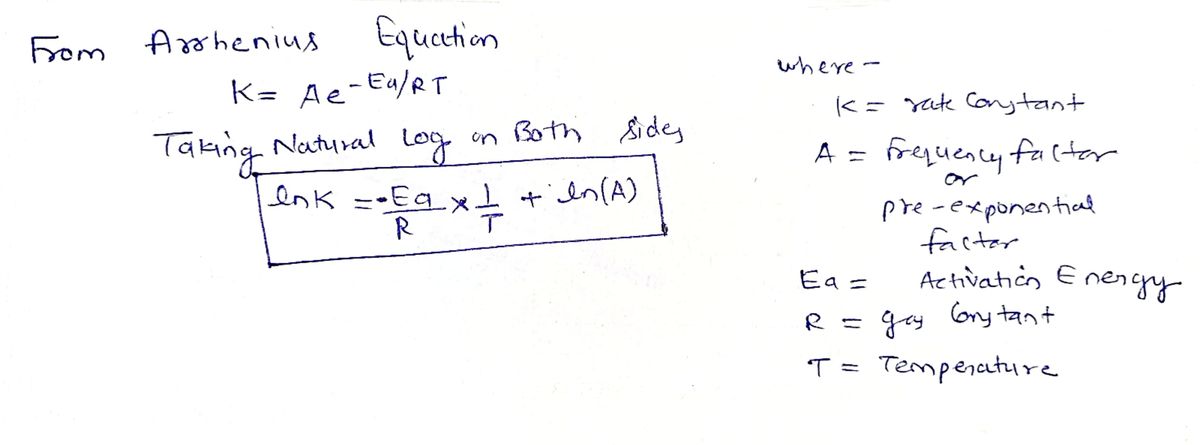 From Arrhenius Equation
K = Ae-Ea/RT
Taking Natural Log on Both sides
lnK = -Ea/R × 1/T + ln(A)
where -
K = rate Constant
A = frequency factor
or
pre-exponential
factor
Ea = Activation Energy
R = gas Constant
T = Temperature